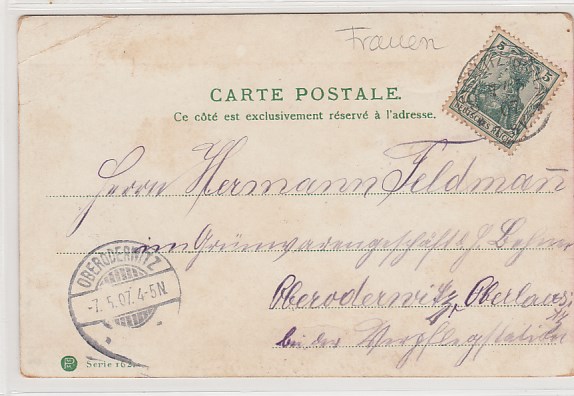 Frauen
5 5
DEUTSCHES REICH
CARTE POSTALE.
Ce côté est exclusivement réservé à l'adresse.
Herrn Hermann Feldmann
im Grünwarengeschäfte
OBERODERWITZ
-7.5.07.4-5N.
Oberoderwitz Oberlausi
bei der Verpflegstation
Serie 162